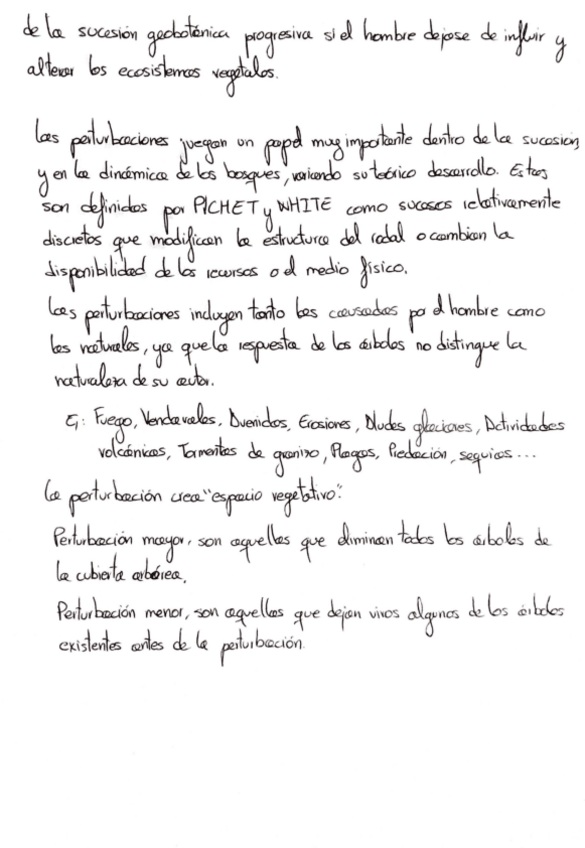 de la sucesión geobotánica progresiva si el hombre dejase de influir y
alterar los ecosistemas vegetales.
Las perturbaciones juegan un papel muy importante dentro de la sucesión
y en la dinámica de los bosques, variando su teórico desarrollo. Estas
son definidas por PICHET y WHITE como sucesos relativamente
discretos que modifican la estructura del rodal o cambian la
disponibilidad de los recursos o el medio físico.
Las perturbaciones incluyen tanto las causadas por el hombre como
las naturales, ya que la respuesta de los árboles no distingue la
naturaleza de su autor.
Ej: Fuego, Vendavales, Avenidas, Erosiones, Aludes glaciares, Actividades
volcánicas, Tormentas de granizo, Plagas, Predación, sequías...
La perturbación crea "espacio vegetativo".
Perturbación mayor, son aquellas que eliminan todos los árboles de
la cubierta arbórea.
Perturbación menor, son aquellas que dejan vivos algunos de los árboles
existentes antes de la perturbación.